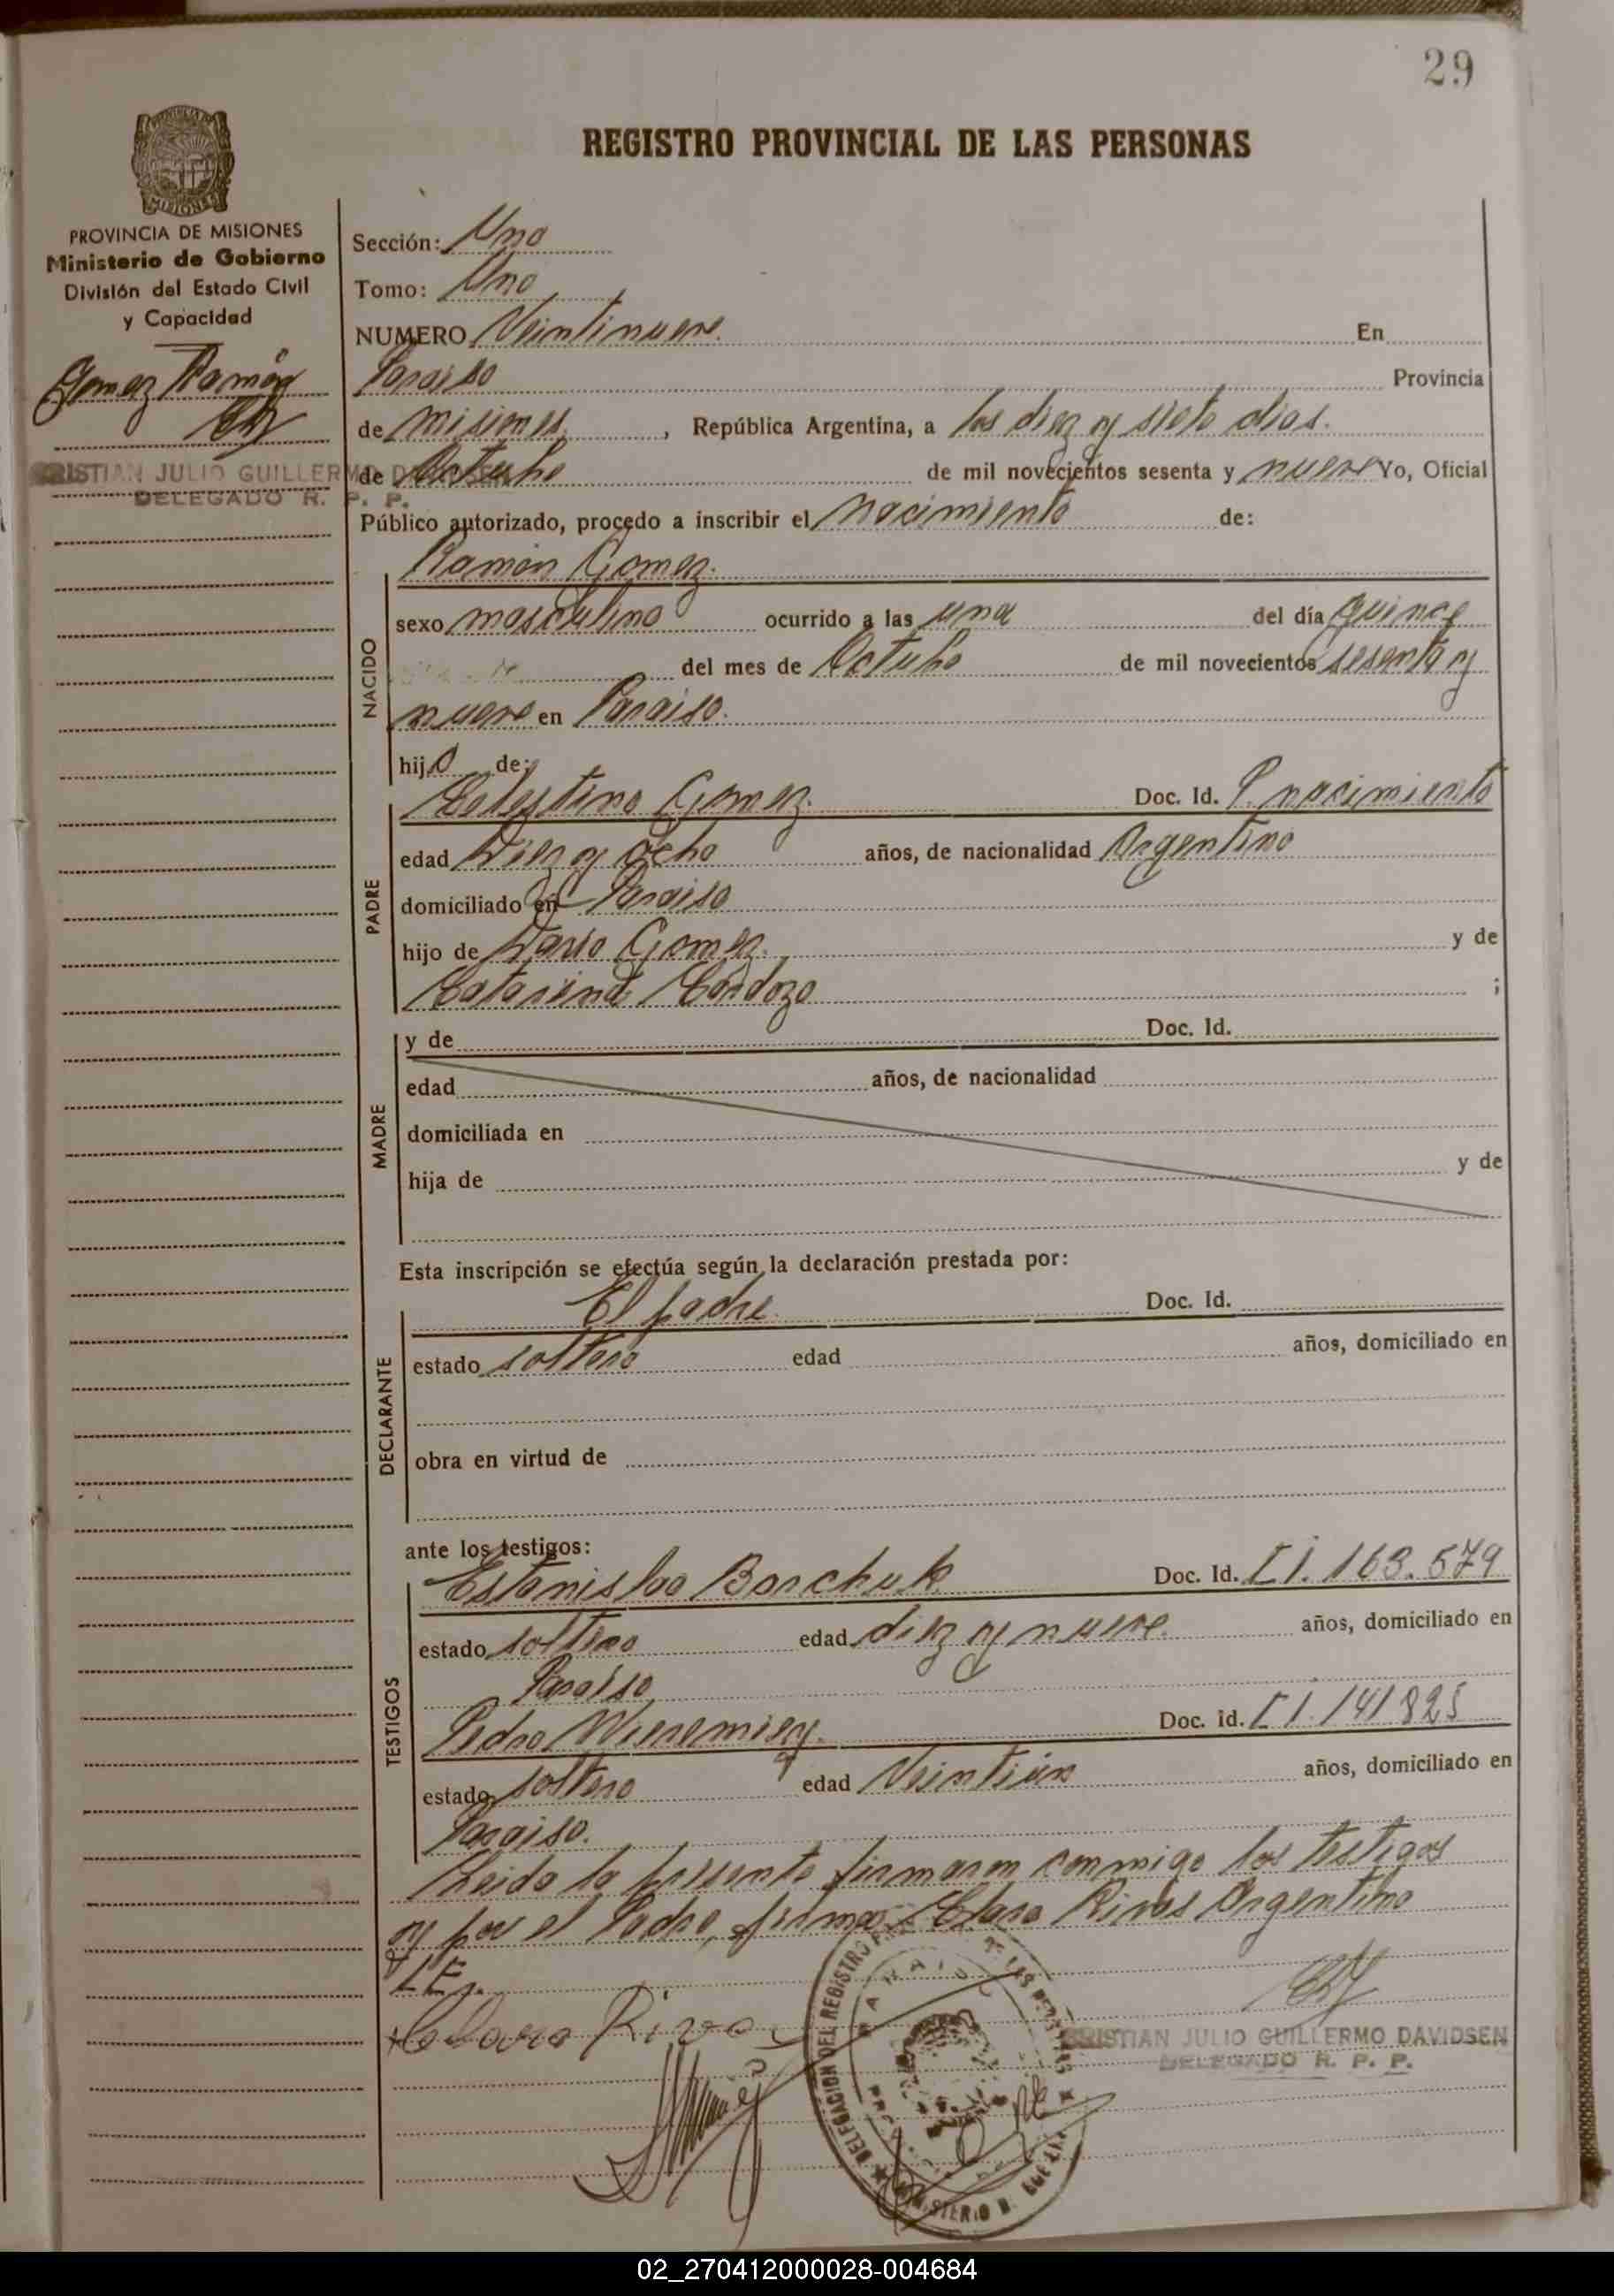 29
REGISTRO PROVINCIAL DE LAS PERSONAS
PROVINCIA DE MISIONES
Ministerio de Gobierno
División del Estado Civil
y Capacidad
Gomez Ramón
CRISTIAN JULIO GUILLERMO DAVIDSEN
DELEGADO R. P. P.
Sección: Uno
Tomo: Uno
NUMERO Veintinueve. En
Paraiso Provincia
de Misiones, República Argentina, a los diez y siete dias.
de Octubre de mil novecientos sesenta y nueve Yo, Oficial
Público autorizado, procedo a inscribir el nacimiento de:
NACIDO
Ramón Gomez.
sexo masculino ocurrido a las una del día quince
del mes de Octubre de mil novecientos sesenta y
nueve en Paraiso.
hijo de:
PADRE
Celestino Gomez. Doc. Id. P. nacimiento
edad Diez y Ocho años, de nacionalidad Argentino
domiciliado en Paraiso
hijo de Dario Gomez. y de
Catarina Cardozo ;
MADRE
y de Doc. Id.
edad años, de nacionalidad
domiciliada en
hija de y de
Esta inscripción se efectúa según la declaración prestada por:
DECLARANTE
El padre Doc. Id.
estado soltero edad años, domiciliado en
obra en virtud de
ante los testigos:
TESTIGOS
Estanislao Barchuk Doc. Id. C I. 163.579
estado soltero edad diez y nueve años, domiciliado en
Paraiso
Pedro Doc. id. C I. 141825
estado soltero edad Veintiún años, domiciliado en
Paraiso.
Leida la presente firmaron conmigo los testigos
y por el Padre, firma Clara Rivas Argentina
L E.
Clara Rivas
CRISTIAN JULIO GUILLERMO DAVIDSEN
DELEGADO R. P. P.
DELEGACION DEL REGISTRO DE LAS PERSONAS
PARAISO
02_270412000028-004684